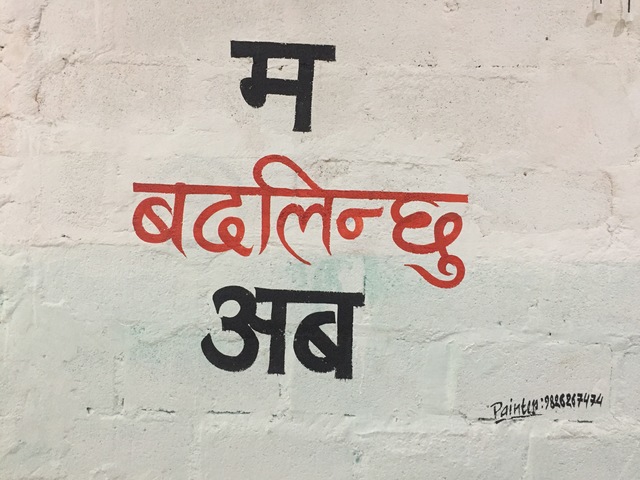 म
बदलिन्छु
अब
Painter:9826267474